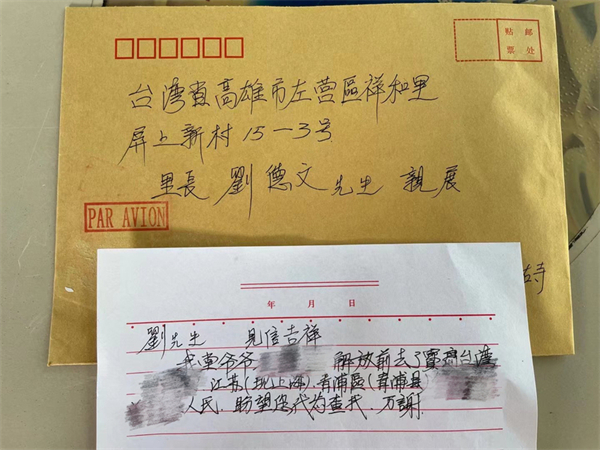 贴 邮
票 处
台湾省高雄市左营區祥和里
屏上新村15-3号
里長 劉德文先生 親展
PAR AVION
年 月 日
劉先生 見信吉祥
我堂爷爷 解放前去了寳島台湾
江苏(现上海)青浦區(青浦县
人民. 盼望您代为查找. 万謝.